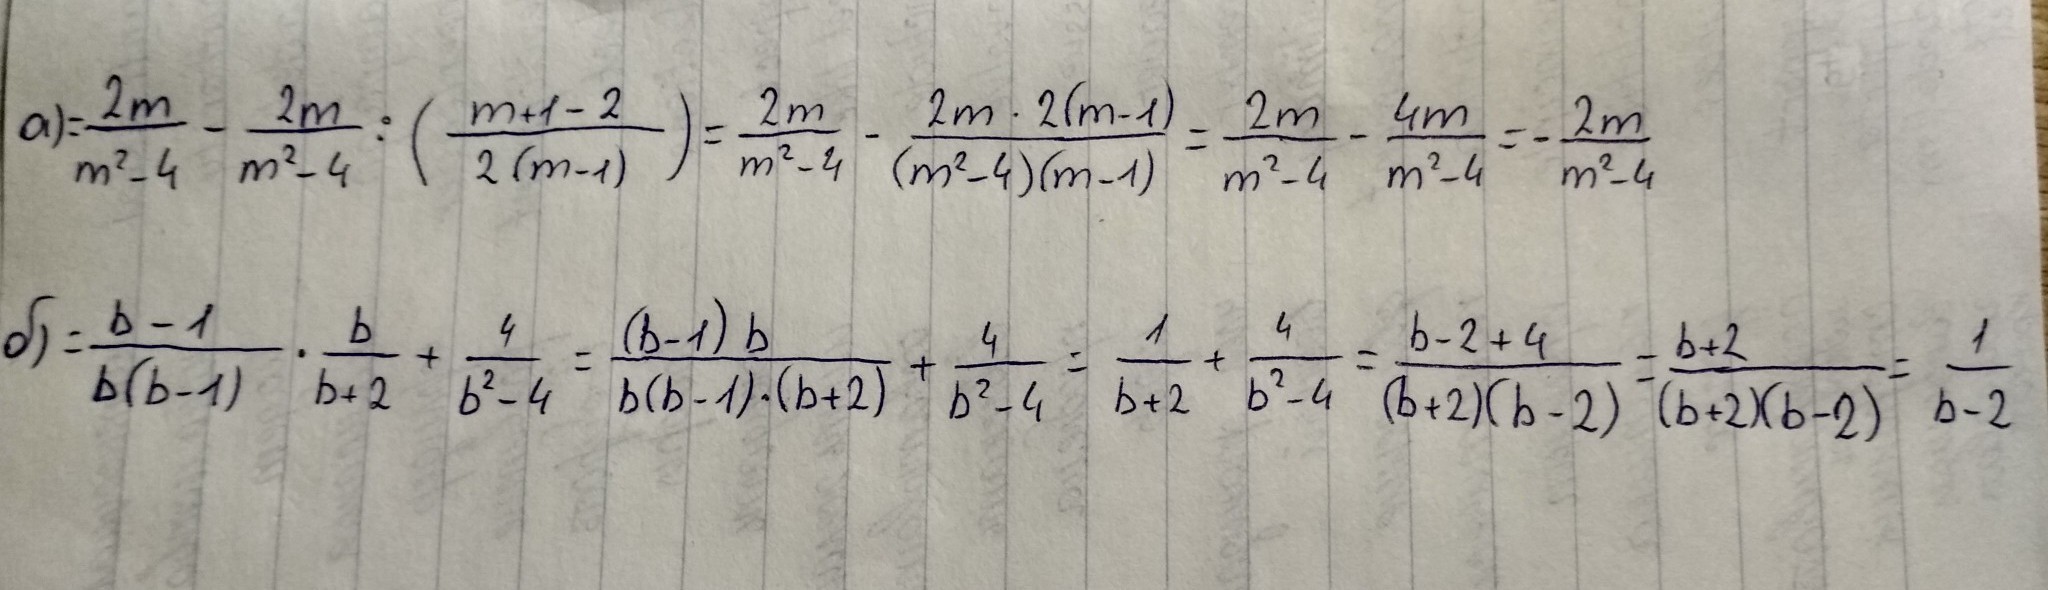 а)= 2m/(m²-4) - 2m/(m²-4) : ((m+1-2)/(2(m-1))) = 2m/(m²-4) - (2m · 2(m-1))/((m²-4)(m-1)) = 2m/(m²-4) - 4m/(m²-4) = - 2m/(m²-4)
б) = (b-1)/(b(b-1)) · b/(b+2) + 4/(b²-4) = ((b-1) b)/(b(b-1)·(b+2)) + 4/(b²-4) = 1/(b+2) + 4/(b²-4) = (b-2+4)/((b+2)(b-2)) = (b+2)/((b+2)(b-2)) = 1/(b-2)